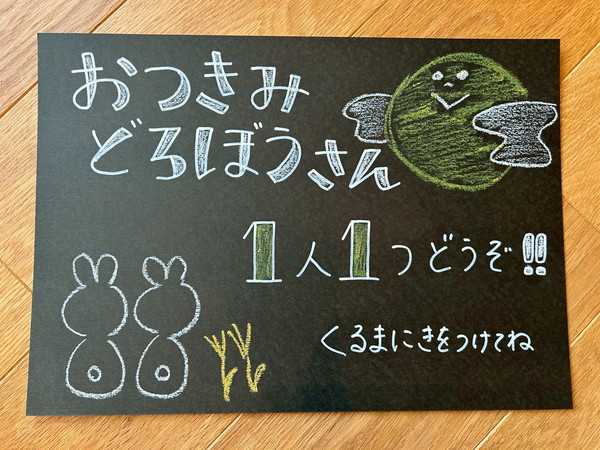 おつきみ
どろぼうさん
1人1つどうぞ!!
くるまにきをつけてね